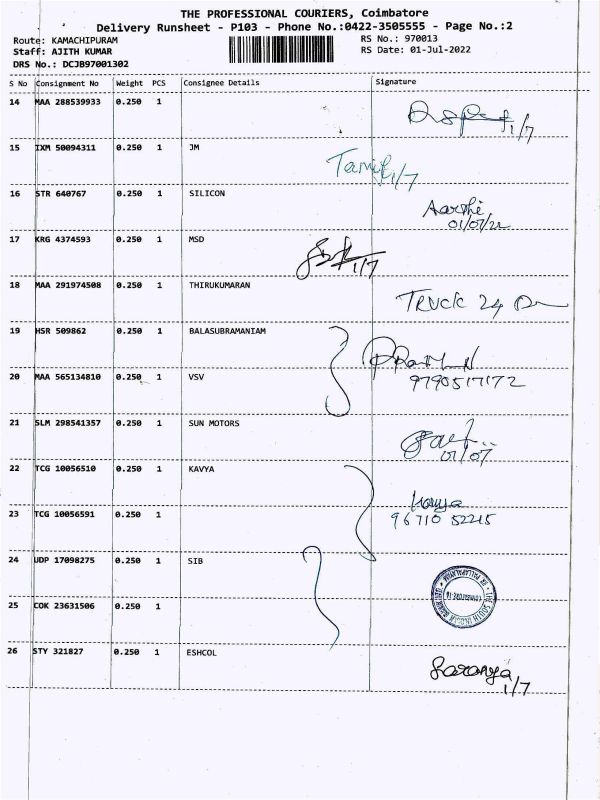 THE PROFESSIONAL COURIERS, Coimbatore
Delivery Runsheet - P103 - Phone No.:0422-3505555 - Page No.:2
Route: KAMACHIPURAM RS No.: 970013
Staff: AJITH KUMAR RS Date: 01-Jul-2022
DRS No.: DCJB97001302
S No Consignment No Weight PCS Consignee Details Signature
14 MAA 288539933 0.250 1
1/7
15 IXM 50094311 0.250 1 JM
1/7
16 STR 640767 0.250 1 SILICON
Aarthi
01/07/22
17 KRG 4374593 0.250 1 MSD
1/7
18 MAA 291974508 0.250 1 THIRUKUMARAN
TRUCK 24
19 HSR 509862 0.250 1 BALASUBRAMANIAM
20 MAA 565134810 0.250 1 VSV
9790517172
21 SLM 298541357 0.250 1 SUN MOTORS
01/07
22 TCG 10056510 0.250 1 KAVYA
Kavya
23 TCG 10056591 0.250 1
96710 52215
24 UDP 17098275 0.250 1 SIB
25 COK 23631506 0.250 1
26 STY 321827 0.250 1 ESHCOL
Saranya
1/7